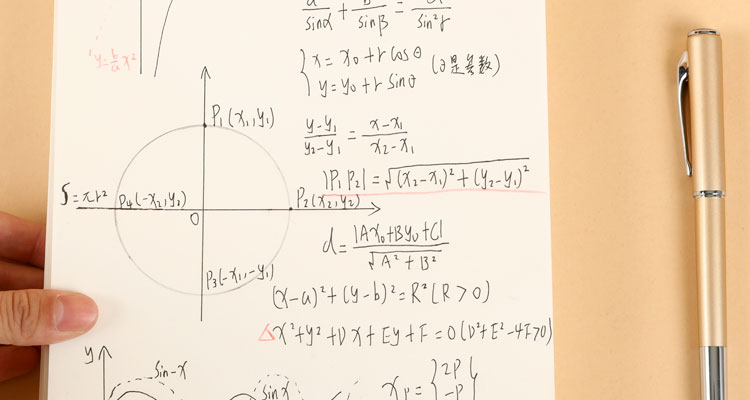 y=b/a x²
sinα + sinβ = sin²γ
x=x₀+rcosθ
y=y₀+rSinθ
(θ是参数)
P₁(x₁,y₁)
y-y₁/y₂-y₁ = x-x₁/x₂-x₁
|P₁P₂|=√(x₂-x₁)²+(y₂-y₁)²
S=πr²
P₄(-x₂,y₂)
P₂(x₂,y₂)
O
d=|Ax₀+By₀+C|/√A²+B²
P₃(-x₁,-y₁)
(x-a)²+(y-b)²=R²(R>0)
△x²+y²+Dx+Ey+F=0(D²+E²-4F>0)
y
sin-x
sinx
xp={2P
-P